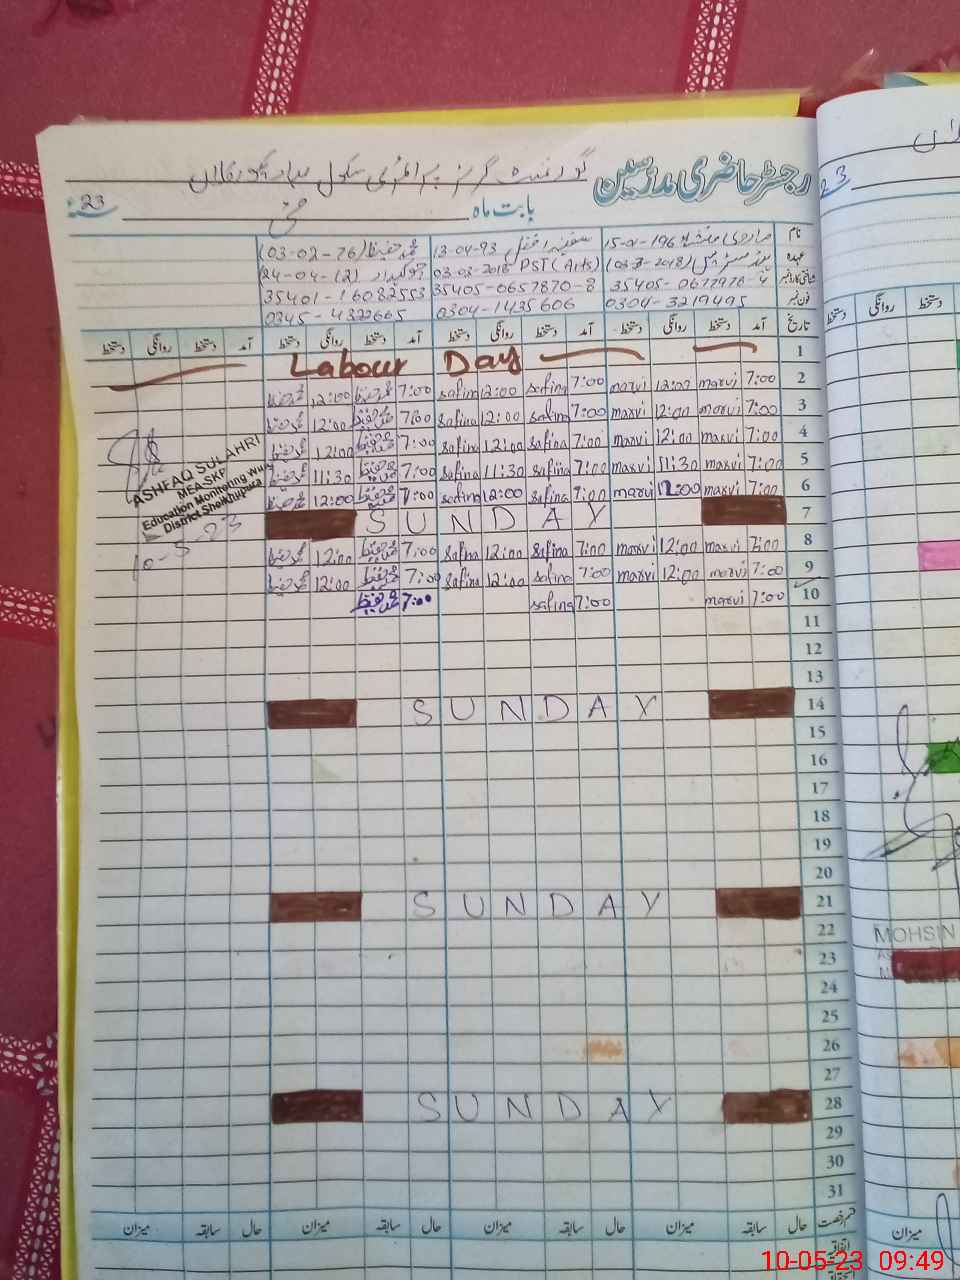 رجسٹر حاضری مدرسین گورنمنٹ گرلز پرائمری سکول
بابت ماہ مئی 23
نام
عہدہ
شناختی کارڈ نمبر
فون نمبر
15-01-196
35405-
0304-3219495
13-04-93
03-03-2018 PST (Arts)
35405-0657870-8
0304-1435606
محمد حفیظ (03-02-76)
چوکیدار (24-04-12)
35401-16082553
0345-4322665
تاریخ آمد دستخط روانگی دستخط آمد دستخط روانگی دستخط آمد دستخط روانگی دستخط آمد دستخط روانگی دستخط
1 Labour Day
2 7:00 marvi 12:00 marvi 7:00 safina 12:00 safina 7:00 محمد حفیظ 12:00 محمد حفیظ
3 7:00 marvi 12:00 marvi 7:00 safina 12:00 safina 7:00 محمد حفیظ 12:00 محمد حفیظ
4 7:00 marvi 12:00 marvi 7:00 safina 12:00 safina 7:00 محمد حفیظ 12:00 محمد حفیظ
5 7:00 marvi 11:30 marvi 7:00 safina 11:30 safina 7:00 محمد حفیظ 11:30 محمد حفیظ
6 7:00 marvi 12:00 marvi 7:00 safina 12:00 safina 7:00 محمد حفیظ 12:00 محمد حفیظ
7 SUNDAY
8 7:00 marvi 12:00 marvi 7:00 safina 12:00 safina 7:00 محمد حفیظ 12:00 محمد حفیظ
9 7:00 marvi 12:00 marvi 7:00 safina 12:00 safina 7:00 محمد حفیظ 12:00 محمد حفیظ
10 7:00 marvi 7:00 safina 7:00 محمد حفیظ
ASHFAQ SULAHRI
MEA.SKP
Education Monitoring Wing
District Sheikhupura
10-5-23
11
12
13
14 SUNDAY
15
16
17
18
19
20
21 SUNDAY
22
23
24
25
26
27
28 SUNDAY
29
30
31
قسم رخصت حال سابقہ میزان حال سابقہ میزان حال سابقہ میزان حال سابقہ میزان
اتفاقیہ
23
دستخط روانگی دستخط
MOHSIN
میزان
10-05-23 09:49